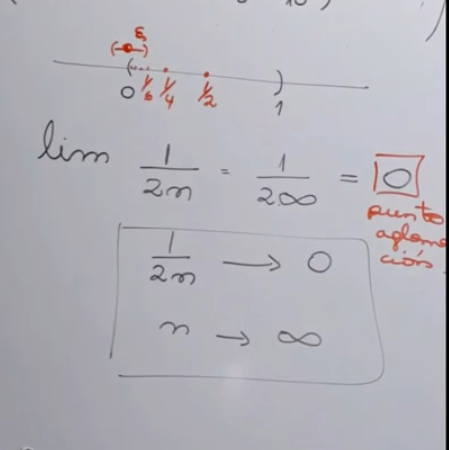 ε
0 1/6 1/4 1/2 1
lim 1/2n = 1/2∞ = 0
punto
aglome
ción
1/2n → 0
n → ∞